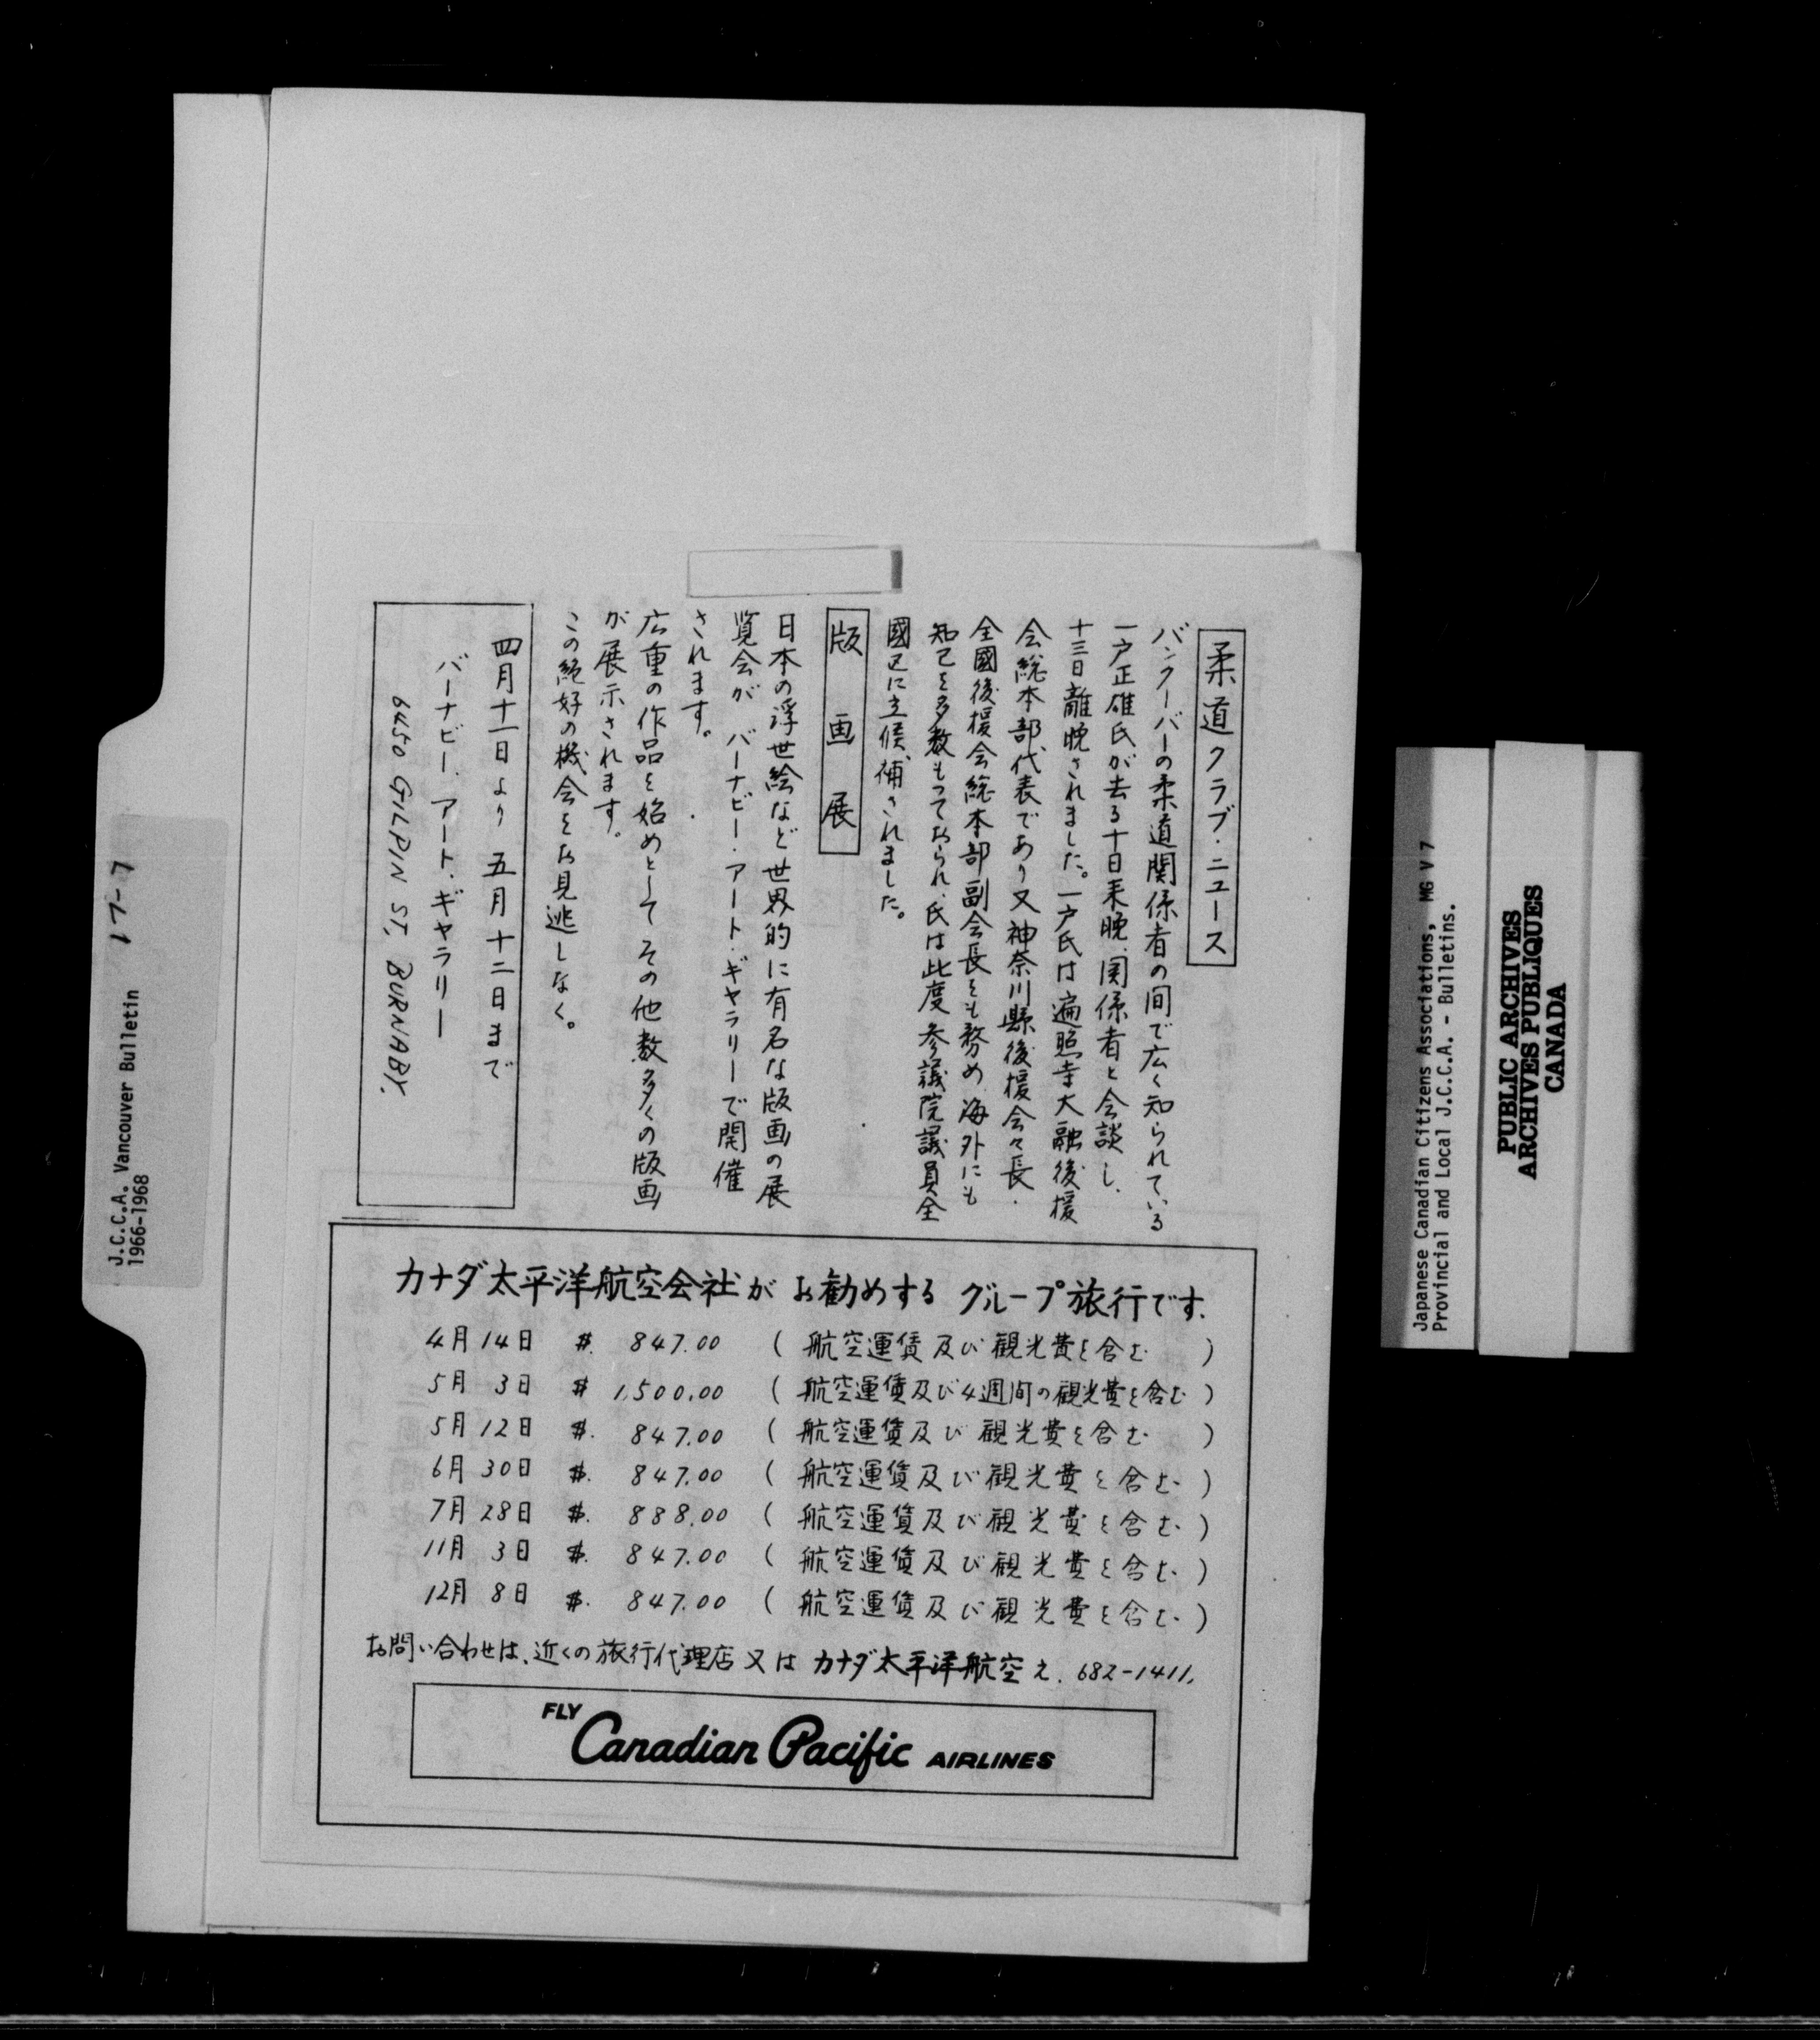 柔道クラブ・ニュース
バンクーバーの柔道関係者の間で広く知られている
一戸正雄氏が去る十日来晩、関係者と会談し、
十三日離晩されました。一戸氏は遍照寺大融後援
会総本部代表であり又神奈川縣後援会々長、
全國後援会総本部副会長をも務め、海外にも
知己を多数もっておられ、氏は此度参議院議員全
國区に立候補されました。
版画展
日本の浮世絵など世界的に有名な版画の展
覧会が バーナビー・アート・ギャラリーで開催
されます。
広重の作品を始めとしてその他数多くの版画
が展示されます。
この絶好の機会をお見逃しなく。
四月十一日より 五月十二日まで
バーナビー・アート・ギャラリー
6450 GILPIN ST, BURNABY.
カナダ太平洋航空会社が お勧めする グループ旅行です.
4月 14日 $. 847.00 ( 航空運賃及び観光費を含む )
5月 3日 $ 1,500.00 ( 航空運賃及び4週間の観光費を含む )
5月 12日 $. 847.00 ( 航空運賃及び観光費を含む )
6月 30日 $. 847.00 ( 航空運賃及び観光費を含む )
7月 28日 $. 888.00 ( 航空運賃及び観光費を含む )
11月 3日 $. 847.00 ( 航空運賃及び観光費を含む )
12月 8日 $. 847.00 ( 航空運賃及び観光費を含む )
お問い合わせは、近くの旅行代理店 又は カナダ太平洋航空え. 682-1411.
FLY Canadian Pacific AIRLINES
J.C.C.A. Vancouver Bulletin
1966-1968
7-21
Japanese Canadian Citizens Associations, MG V 7
Provincial and Local J.C.C.A. - Bulletins.
PUBLIC ARCHIVES
ARCHIVES PUBLIQUES
CANADA